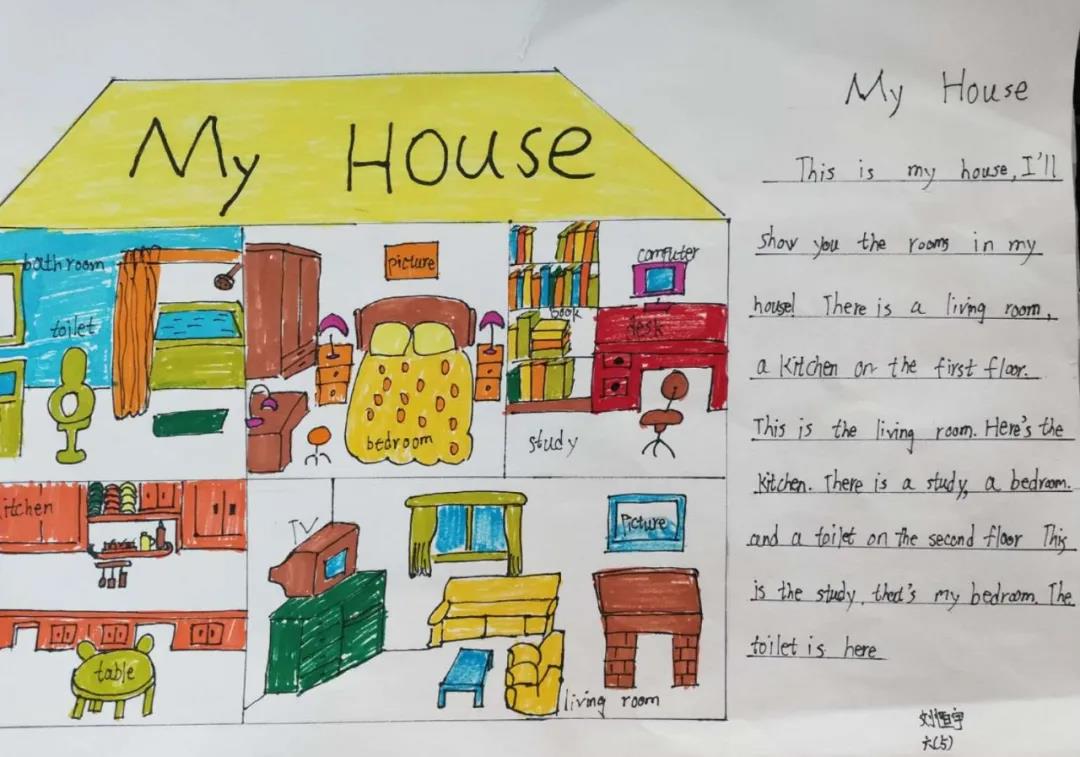 My House
bathroom
toilet
picture
bedroom
computer
book
desk
study
itchen
table
TV
Picture
living room
My House
This is my house, I'll
show you the rooms in my
house! There is a living room,
a kitchen on the first floor.
This is the living room. Here's the
kitchen. There is a study, a bedroom.
and a toilet on the second floor This
is the study, that's my bedroom. The
toilet is here
刘恒宇
六(5)